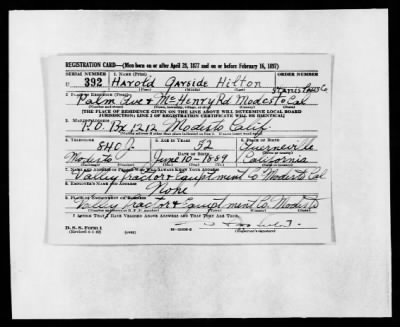 REGISTRATION CARD—(Men born on or after April 28, 1877 and on or before February 16, 1897)
SERIAL NUMBER 1. NAME (Print) ORDER NUMBER
392 Harold Garside Hilton
(First) (Middle) (Last)
Stanislaus Co
2. PLACE OF RESIDENCE (Print)
Palm Ave & McHenry Rd Modesto Cal
[THE PLACE OF RESIDENCE GIVEN ON THE LINE ABOVE WILL DETERMINE LOCAL BOARD
JURISDICTION; LINE 2 OF REGISTRATION CERTIFICATE WILL BE IDENTICAL]
3. MAILING ADDRESS
P.O. Bx 1212 Modesto Calif.
4. TELEPHONE 5. AGE IN YEARS 6. PLACE OF BIRTH
840 J. 52 Guerneville
DATE OF BIRTH
Modesto June 10-1889 California
7. NAME AND ADDRESS OF PERSON WHO WILL ALWAYS KNOW YOUR ADDRESS
Valley Tractor & Equiptment Co Modesto Cal
8. EMPLOYER'S NAME AND ADDRESS
None
9. PLACE OF EMPLOYMENT OR BUSINESS
Valley Tractor & Equiptment Co. Modesto
I AFFIRM THAT I HAVE VERIFIED ABOVE ANSWERS AND THAT THEY ARE TRUE.
D. S. S. Form 1
(Revised 4-1-42) (over) (Registrant's signature)